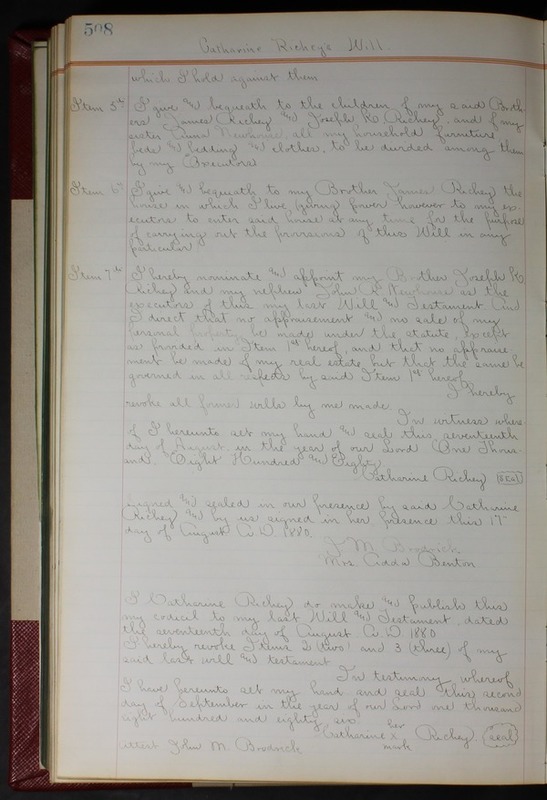 508
Catharine Richey's Will.
which I hold against them
Item 5th I give and bequeath to the children of my said Broth-
ers James Richey and Joseph K Richey, and of my
sister Anna Newhouse, all my household furniture
beds and bedding and clothes, to be divided among them
by my Executors
Item 6th I give & bequeath to my Brother James Richey the
house in which I live giving power however to my ex-
ecutors to enter said house at any time for the purpose
of carrying out the provisions of this Will in any
particular
Item 7th I hereby nominate and appoint my Brother Joseph K
Richey and my nephew John R Newhouse as the
executors of this my last Will and Testament. And
I direct that no appraisement and no sale of my
personal property be made under the statute, except
as provided in Item 1st hereof, and that no appraise
ment be made of my real estate but that the same be
governed in all respects by said Item 1st hereof
I hereby
revoke all former wills by me made.
In witness where
of I hereunto set my hand and seal this seventeenth
day of August, in the year of our Lord One Thous-
and Eight Hundred and Eighty
Catharine Richey (SEAL)
Signed and sealed in our presence by said Catharine
Richey and by us signed in her presence this 17
day of August A. D. 1880.
J. M. Brodrick
Mrs. Adda Benton
I Catharine Richey do make and publish this
my codicil to my last Will and Testament, dated
the seventeenth day of August A. D. 1880
I hereby revoke Items 2 (two) and 3 (three) of my
said last will and testament
In testimony whereof
I have hereunto set my hand and seal this second
day of September in the year of our Lord one thousand
eight hundred and eighty six
her
Catharine x Richey. (seal)
attest John M. Brodrick mark